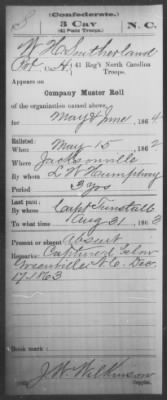 (Confederate.)
3 Cav
(41 State Troops.)
N. C.
W. H. Sutherland
Pvt Co. H, 41 Reg't North Carolina
Troops.
Appears on
Company Muster Roll
of the organization named above,
for May & June, 1864
Enlisted:
When May 15, 1862
Where Jacksonville
By whom L. W. Humphrey
Period 3 yrs
Last paid:
By whom Capt Tunstall
To what time Aug 31, 1863
Present or absent Absent
Remarks: Captured below
Greenville N. C. Dec
17 1863
Book mark:
J. W. Wilkinson
Copyist.